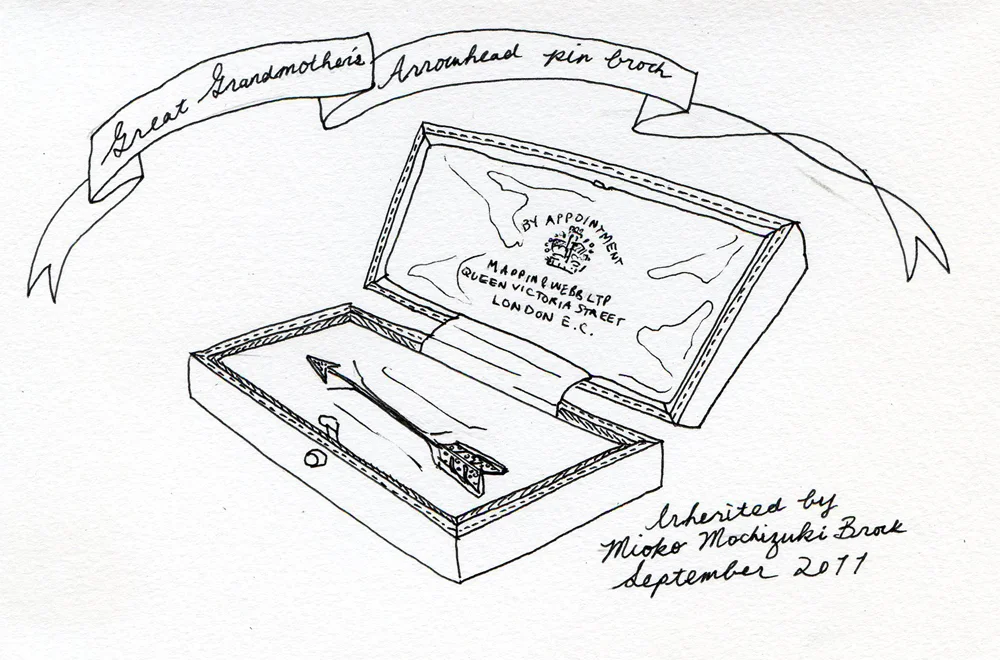 Great Grandmother's Arrowhead pin broch
BY APPOINTMENT
MAPPIN & WEBB LTP
QUEEN VICTORIA STREET
LONDON E.C.
Inherited by
Mioko Mochizuki Brock
September 2011